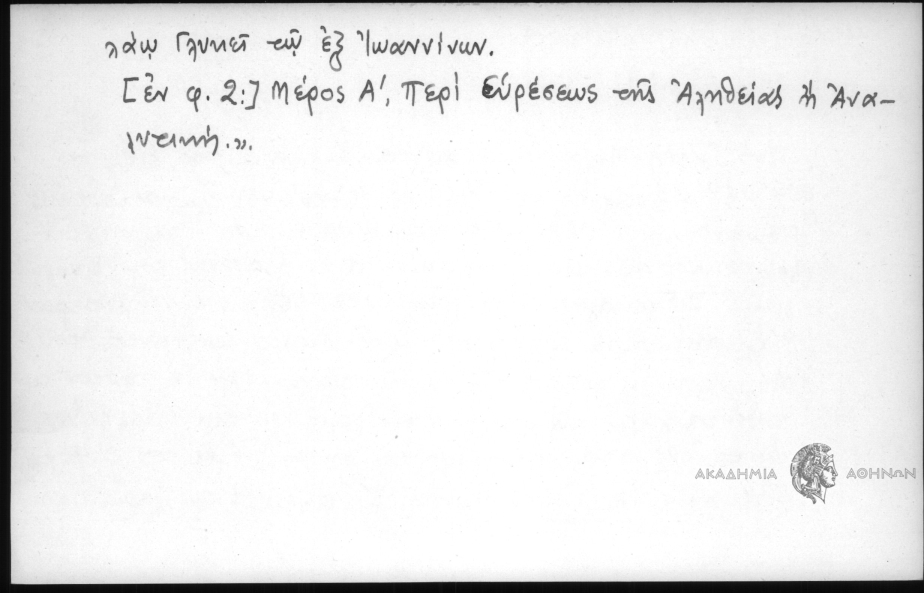 λάῳ Γλυκεῖ τῷ ἐξ Ἰωαννίνων.
[ἐν φ. 2:] Μέρος Α', Περὶ Εὑρέσεως τῆς Ἀληθείας ἢ Ἀνα-
λυτική.».
ΑΚΑΔΗΜΙΑ ΑΘΗΝΩΝ